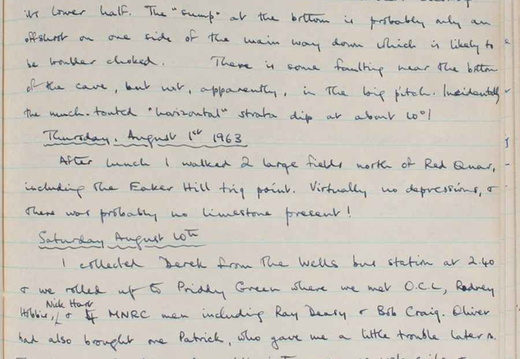 its lower half. The "sump" at the bottom is probably only an
offshoot on one side of the main way down which is likely to
be boulder choked. There is some faulting near the bottom
of the cave, but not, apparently, in the big pitch. Incidentally
the much-touted "horizontal" strata dip at about 10°!
Thursday. August 1st 1963
After lunch I walked 2 large fields north of Red Quar,
including the Eaker Hill trig point. Virtually no depressions, &
there was probably no limestone present!
Saturday August 10th
I collected Derek from the Wells bus station at 2.40
& we rolled up to Priddy Green where we met O.C.L, Rodney
Nick Hart
Hobbs, & 4 MNRC men including Ray Deasy & Bob Craig. Oliver
had also brought one Patrick, who gave me a little trouble later